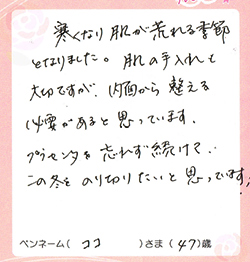 寒くなり肌が荒れる季節
となりました。肌の手入れも
大切ですが、内面から整える
必要があると思っています。
プラセンタを忘れず続けて、
この冬をのり切りたいと思っています。
ペンネーム( ココ )さま (47)歳